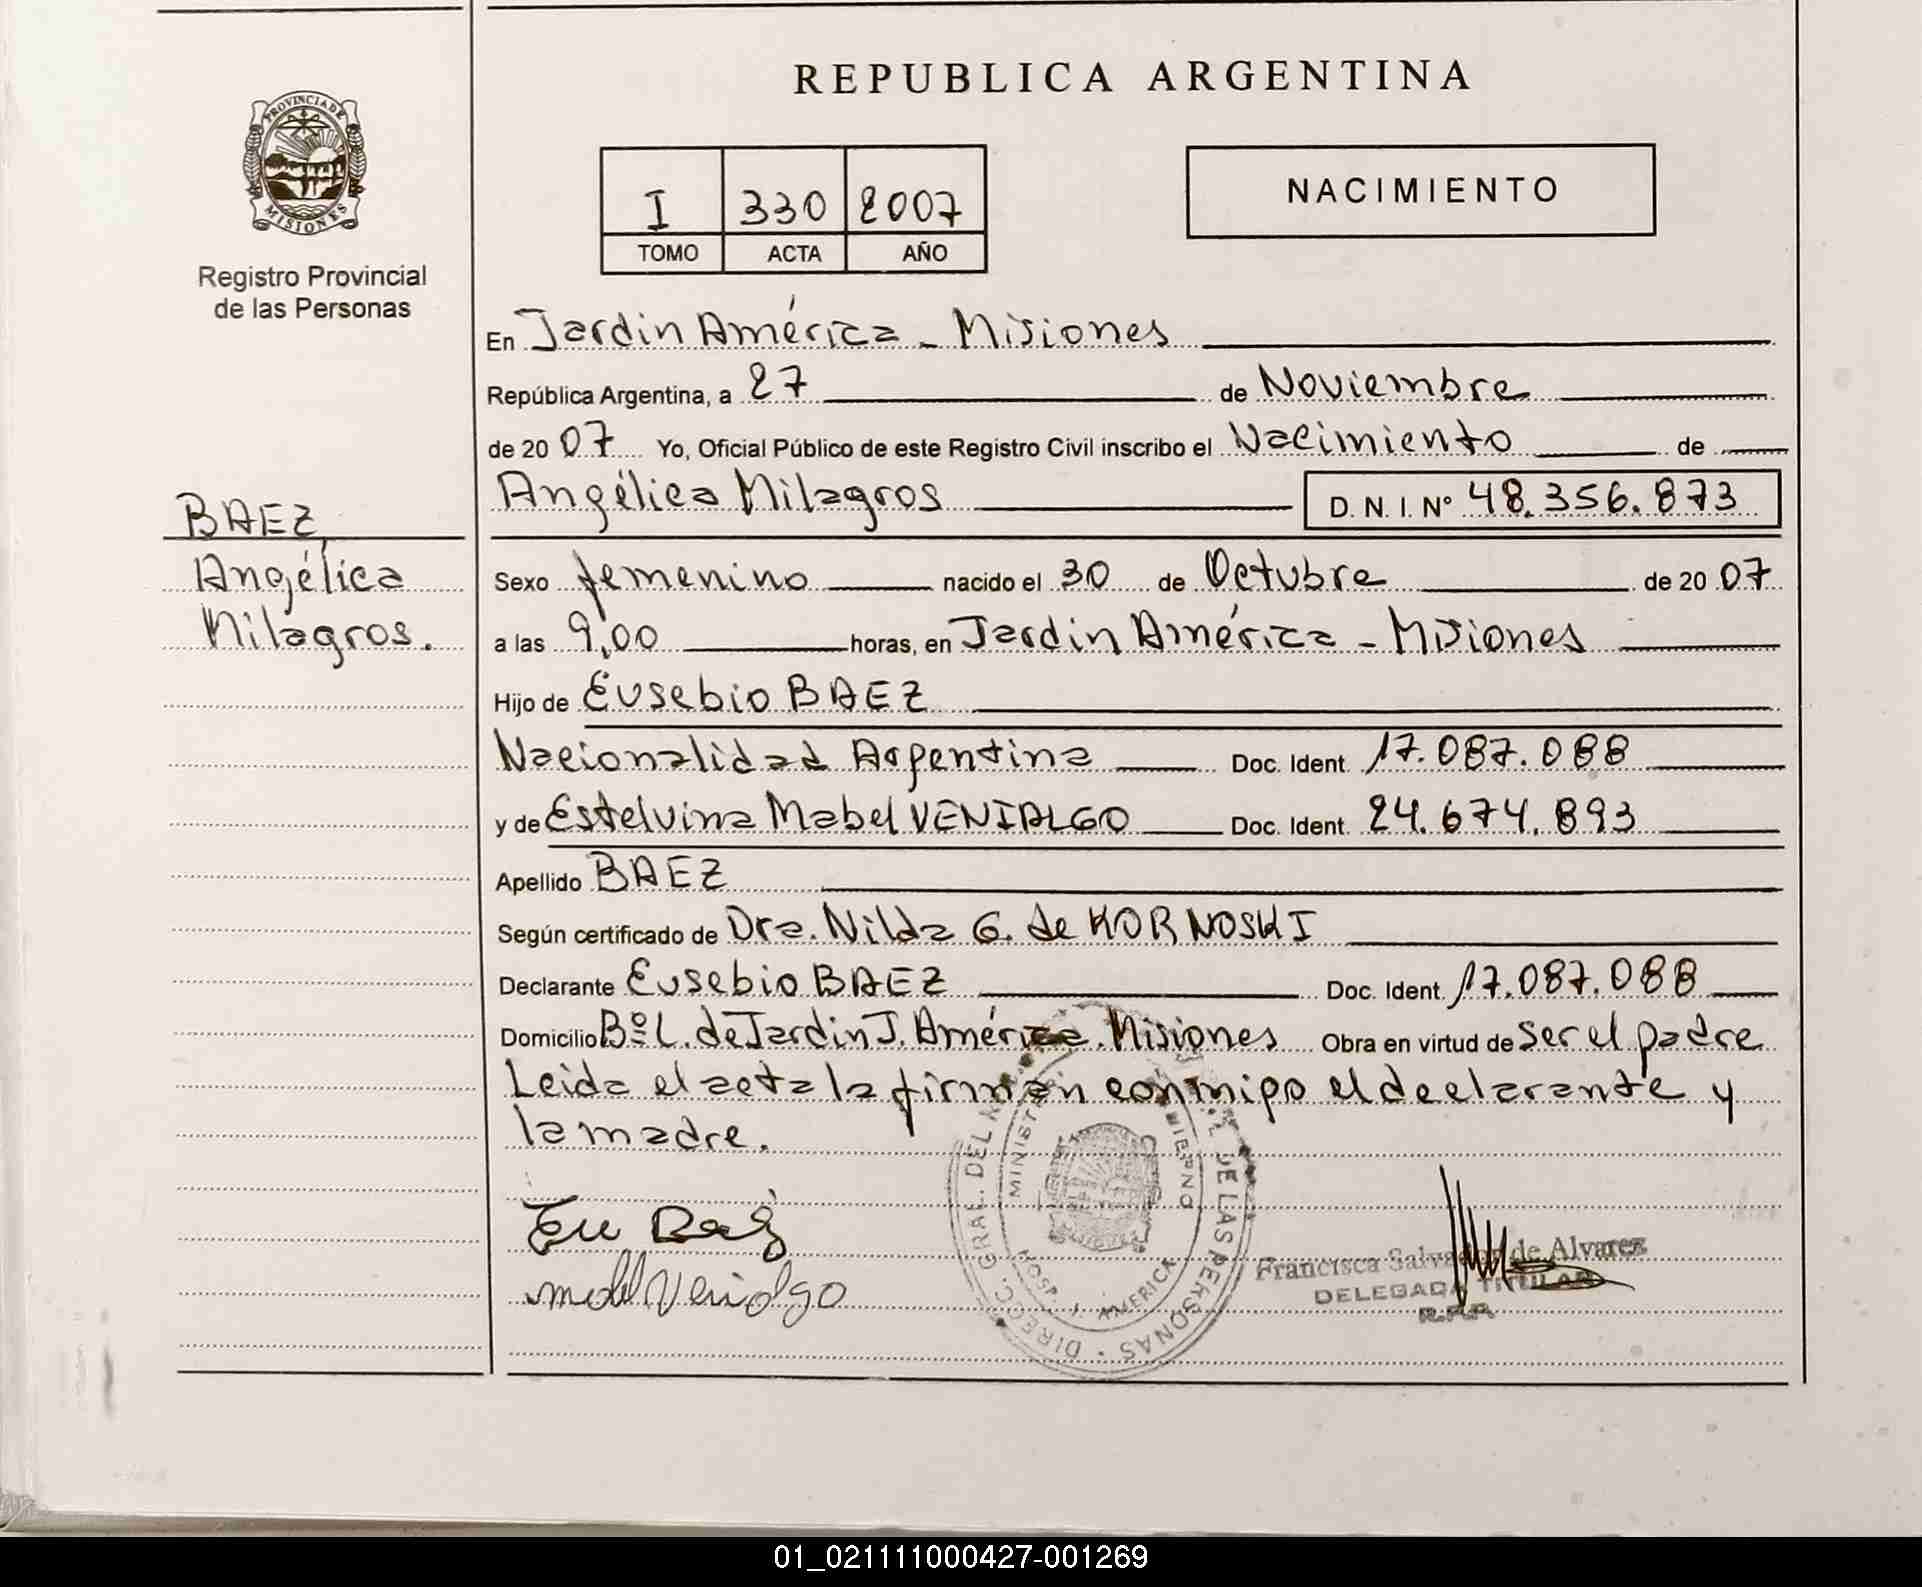 REPUBLICA ARGENTINA
PROVINCIA DE
MISIONES
Registro Provincial
de las Personas
I 330 2007
TOMO ACTA AÑO
NACIMIENTO
En Jardin América - Misiones
República Argentina, a 27 de Noviembre
de 20 07 Yo, Oficial Público de este Registro Civil inscribo el Nacimiento de
Angélica Milagros D. N. I. Nº 48.356.873
BAEZ
Angélica
Milagros.
Sexo femenino nacido el 30 de Octubre de 20 07
a las 9,00 horas, en Jardin América - Misiones
Hijo de Eusebio BAEZ
Nacionalidad Argentina Doc. Ident. 17.087.088
y de Estelvina Mabel VENIALGO Doc. Ident. 24.674.893
Apellido BAEZ
Según certificado de Dra. Nilda G. de KORNOSKI
Declarante Eusebio BAEZ Doc. Ident. 17.087.088
Domicilio Bº L. de Jardin J. América. Misiones Obra en virtud de ser el padre
Leida el acta la firman conmigo el declarante y
la madre.
Eu Baez
mabel Venialgo
DIREC. GRAL. DEL DE LAS PERSONAS
HOSP. J. AMERICA
Francisca Salvador de Alvarez
DELEGADA TITULAR
R.P.P.
01_021111000427-001269